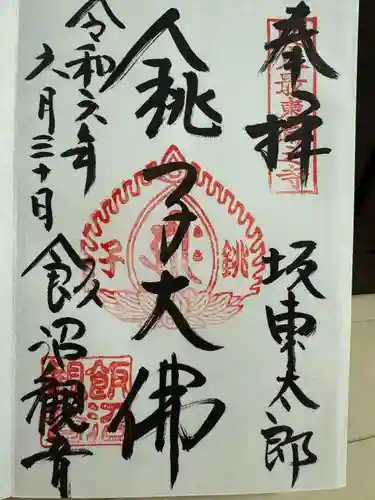 奉拝
坂東太郎
銚子大佛
令和六年
六月三十日
飯沼観音
最東
寺
銚
子
飯沼